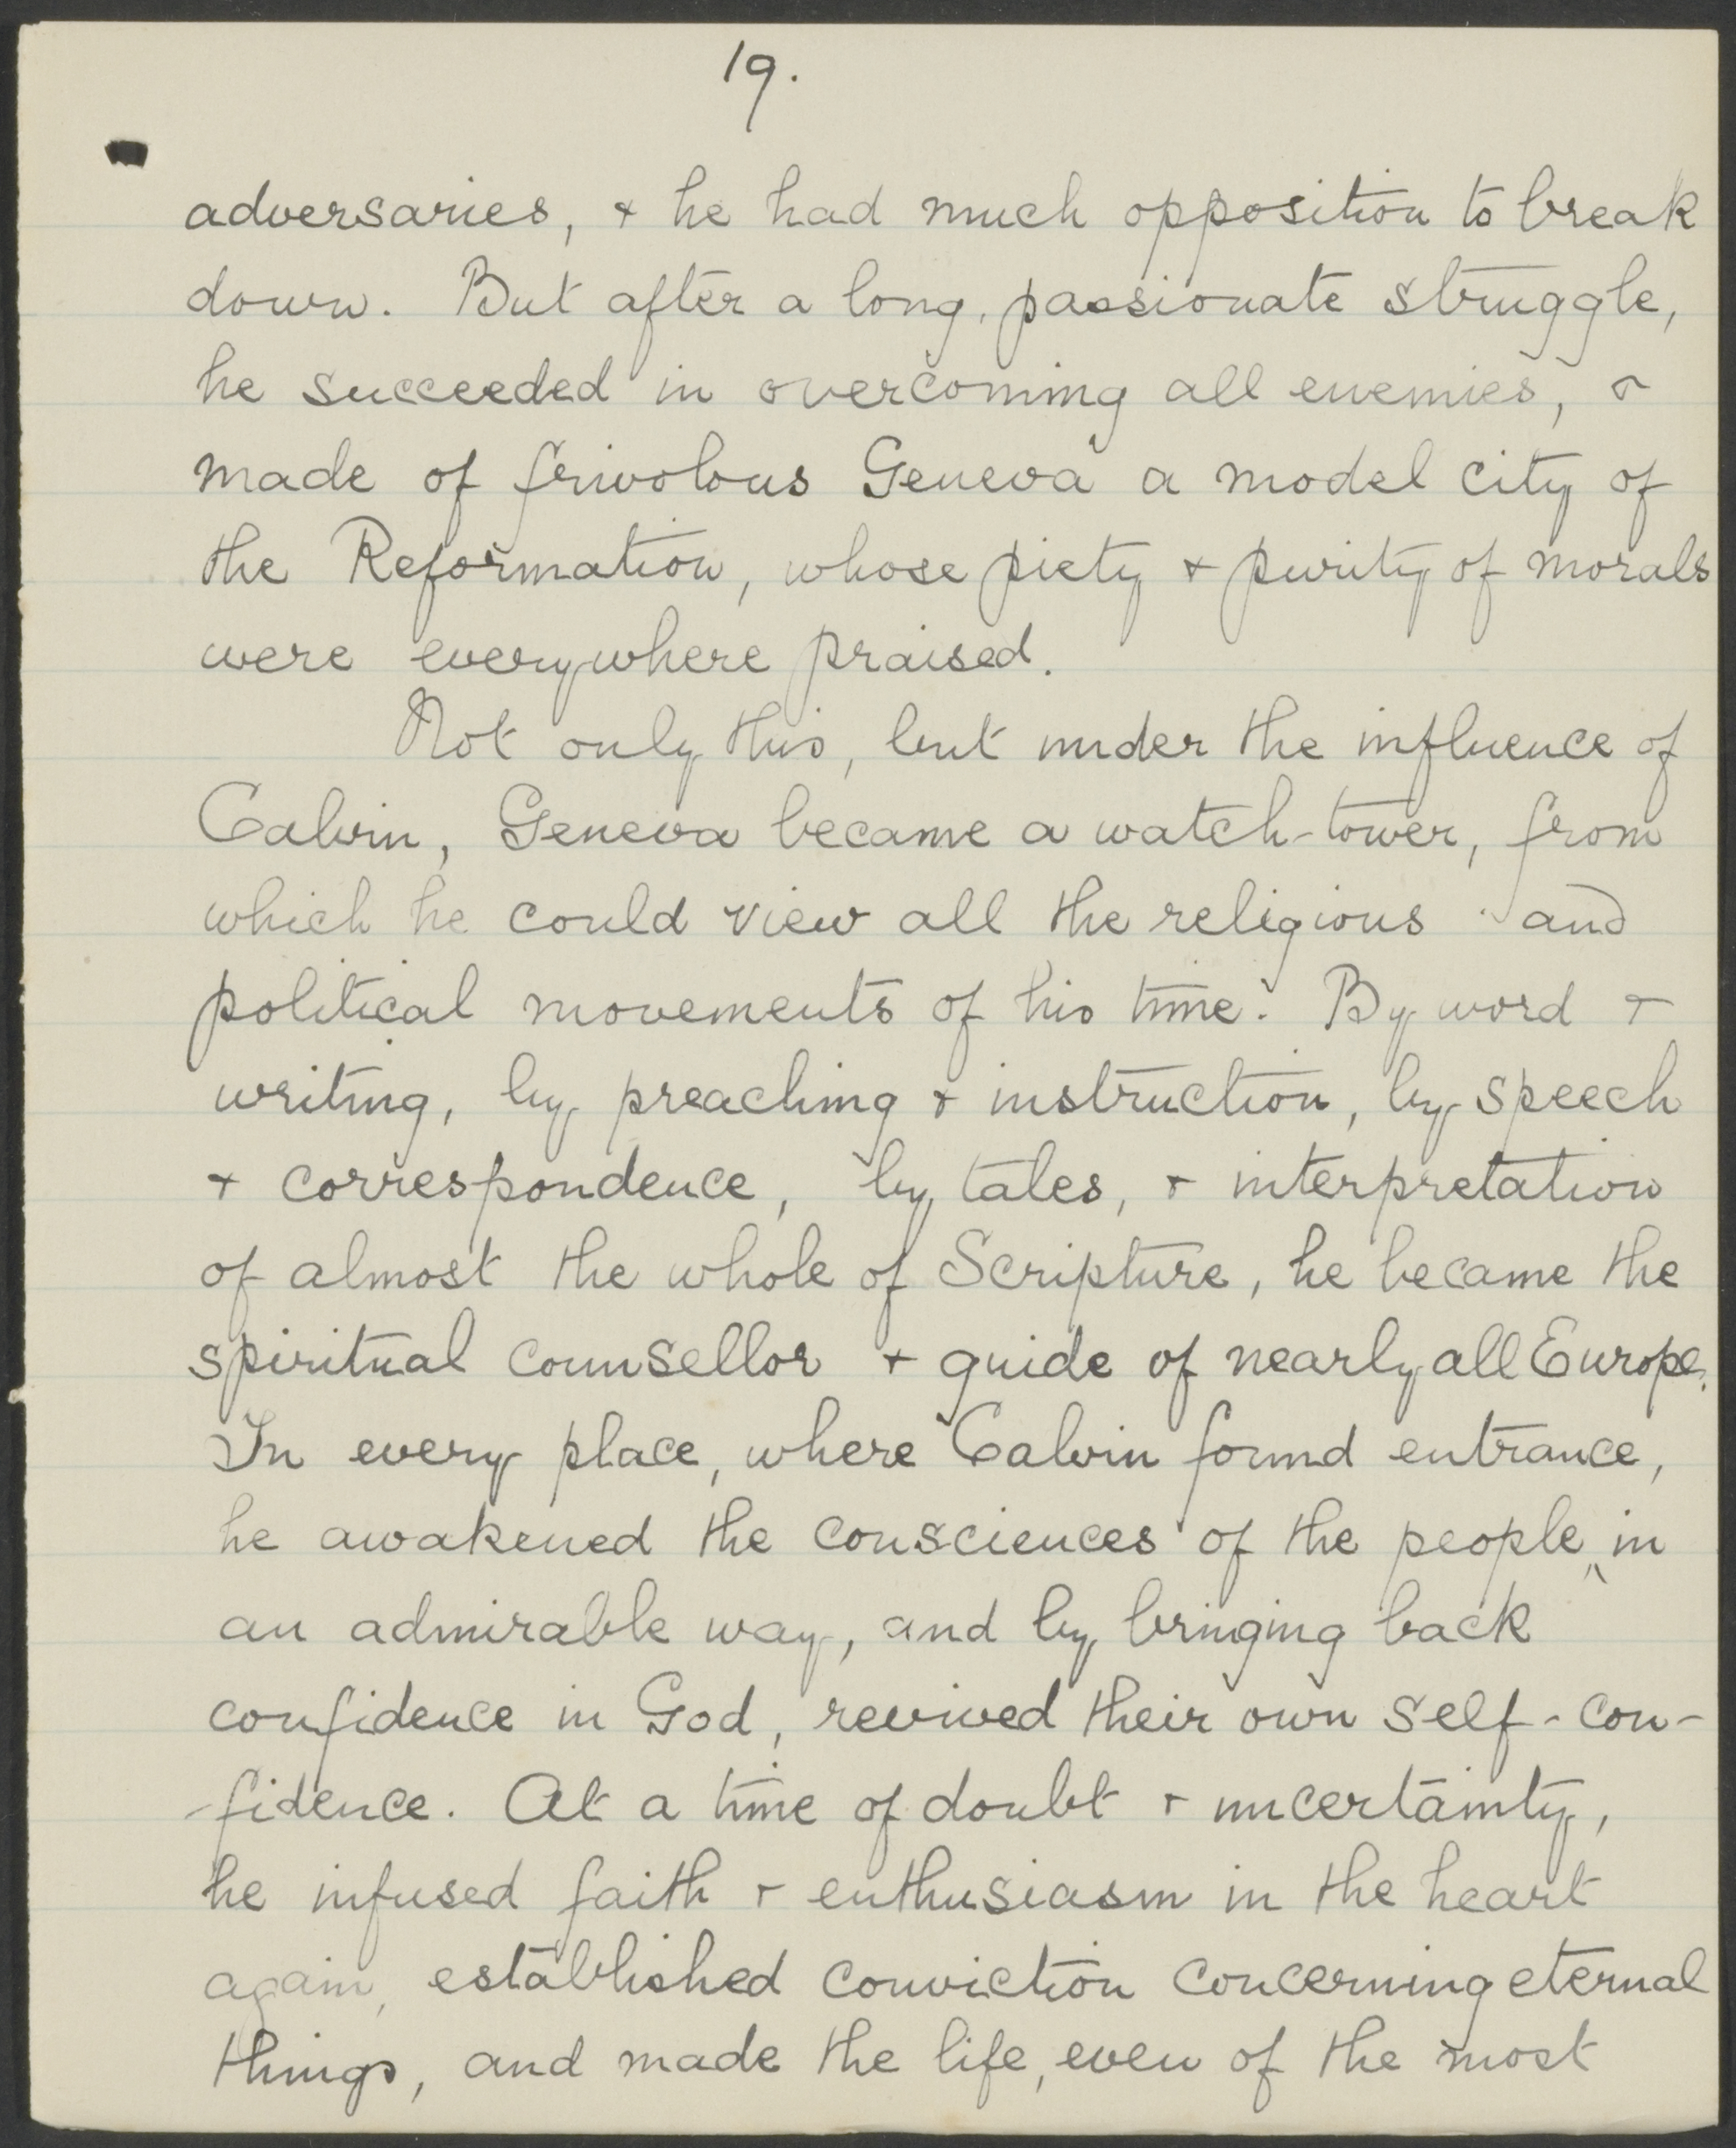 19.
adversaries, & he had much opposition to break
down. But after a long, passionate struggle,
he succeeded in overcoming all enemies, &
made of frivolous Geneva a model city of
the Reformation, whose piety & purity of morals
were everywhere praised.
Not only this, but under the influence of
Calvin, Geneva became a watch-tower, from
which he could view all the religious and
political movements of his time. By word &
writing, by preaching & instruction, by speech
& correspondence, by tales, & interpretation
of almost the whole of Scripture, he became the
spiritual counsellor & guide of nearly all Europe.
In every place, where Calvin found entrance,
he awakened the consciences of the people, in
an admirable way, and by bringing back
confidence in God, revived their own self-con-
-fidence. At a time of doubt & uncertainty,
he infused faith & enthusiasm in the heart
again, established conviction concerning eternal
things, and made the life, even of the most